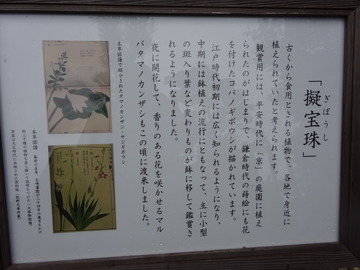 「擬宝珠」
ぎぼうし
古くから食用とされる植物で、各地で身近に
植えられていたと考えられます。
観賞用には、平安時代に「京」の庭園に植え
られたのがはじまりで、鎌倉時代の蒔絵にも花
を付けたコバノギボウシが描かれています。
江戸時代初期には広く知られるようになり、
中期には鉢植えの流行にともなって、主に小型
の斑入り葉など変わりものが鉢に移して鑑賞さ
れるようになりました。
夜に開花して、香りのある花を咲かせるマル
バタマノカンザシもこの頃に渡来しました。
本草図譜